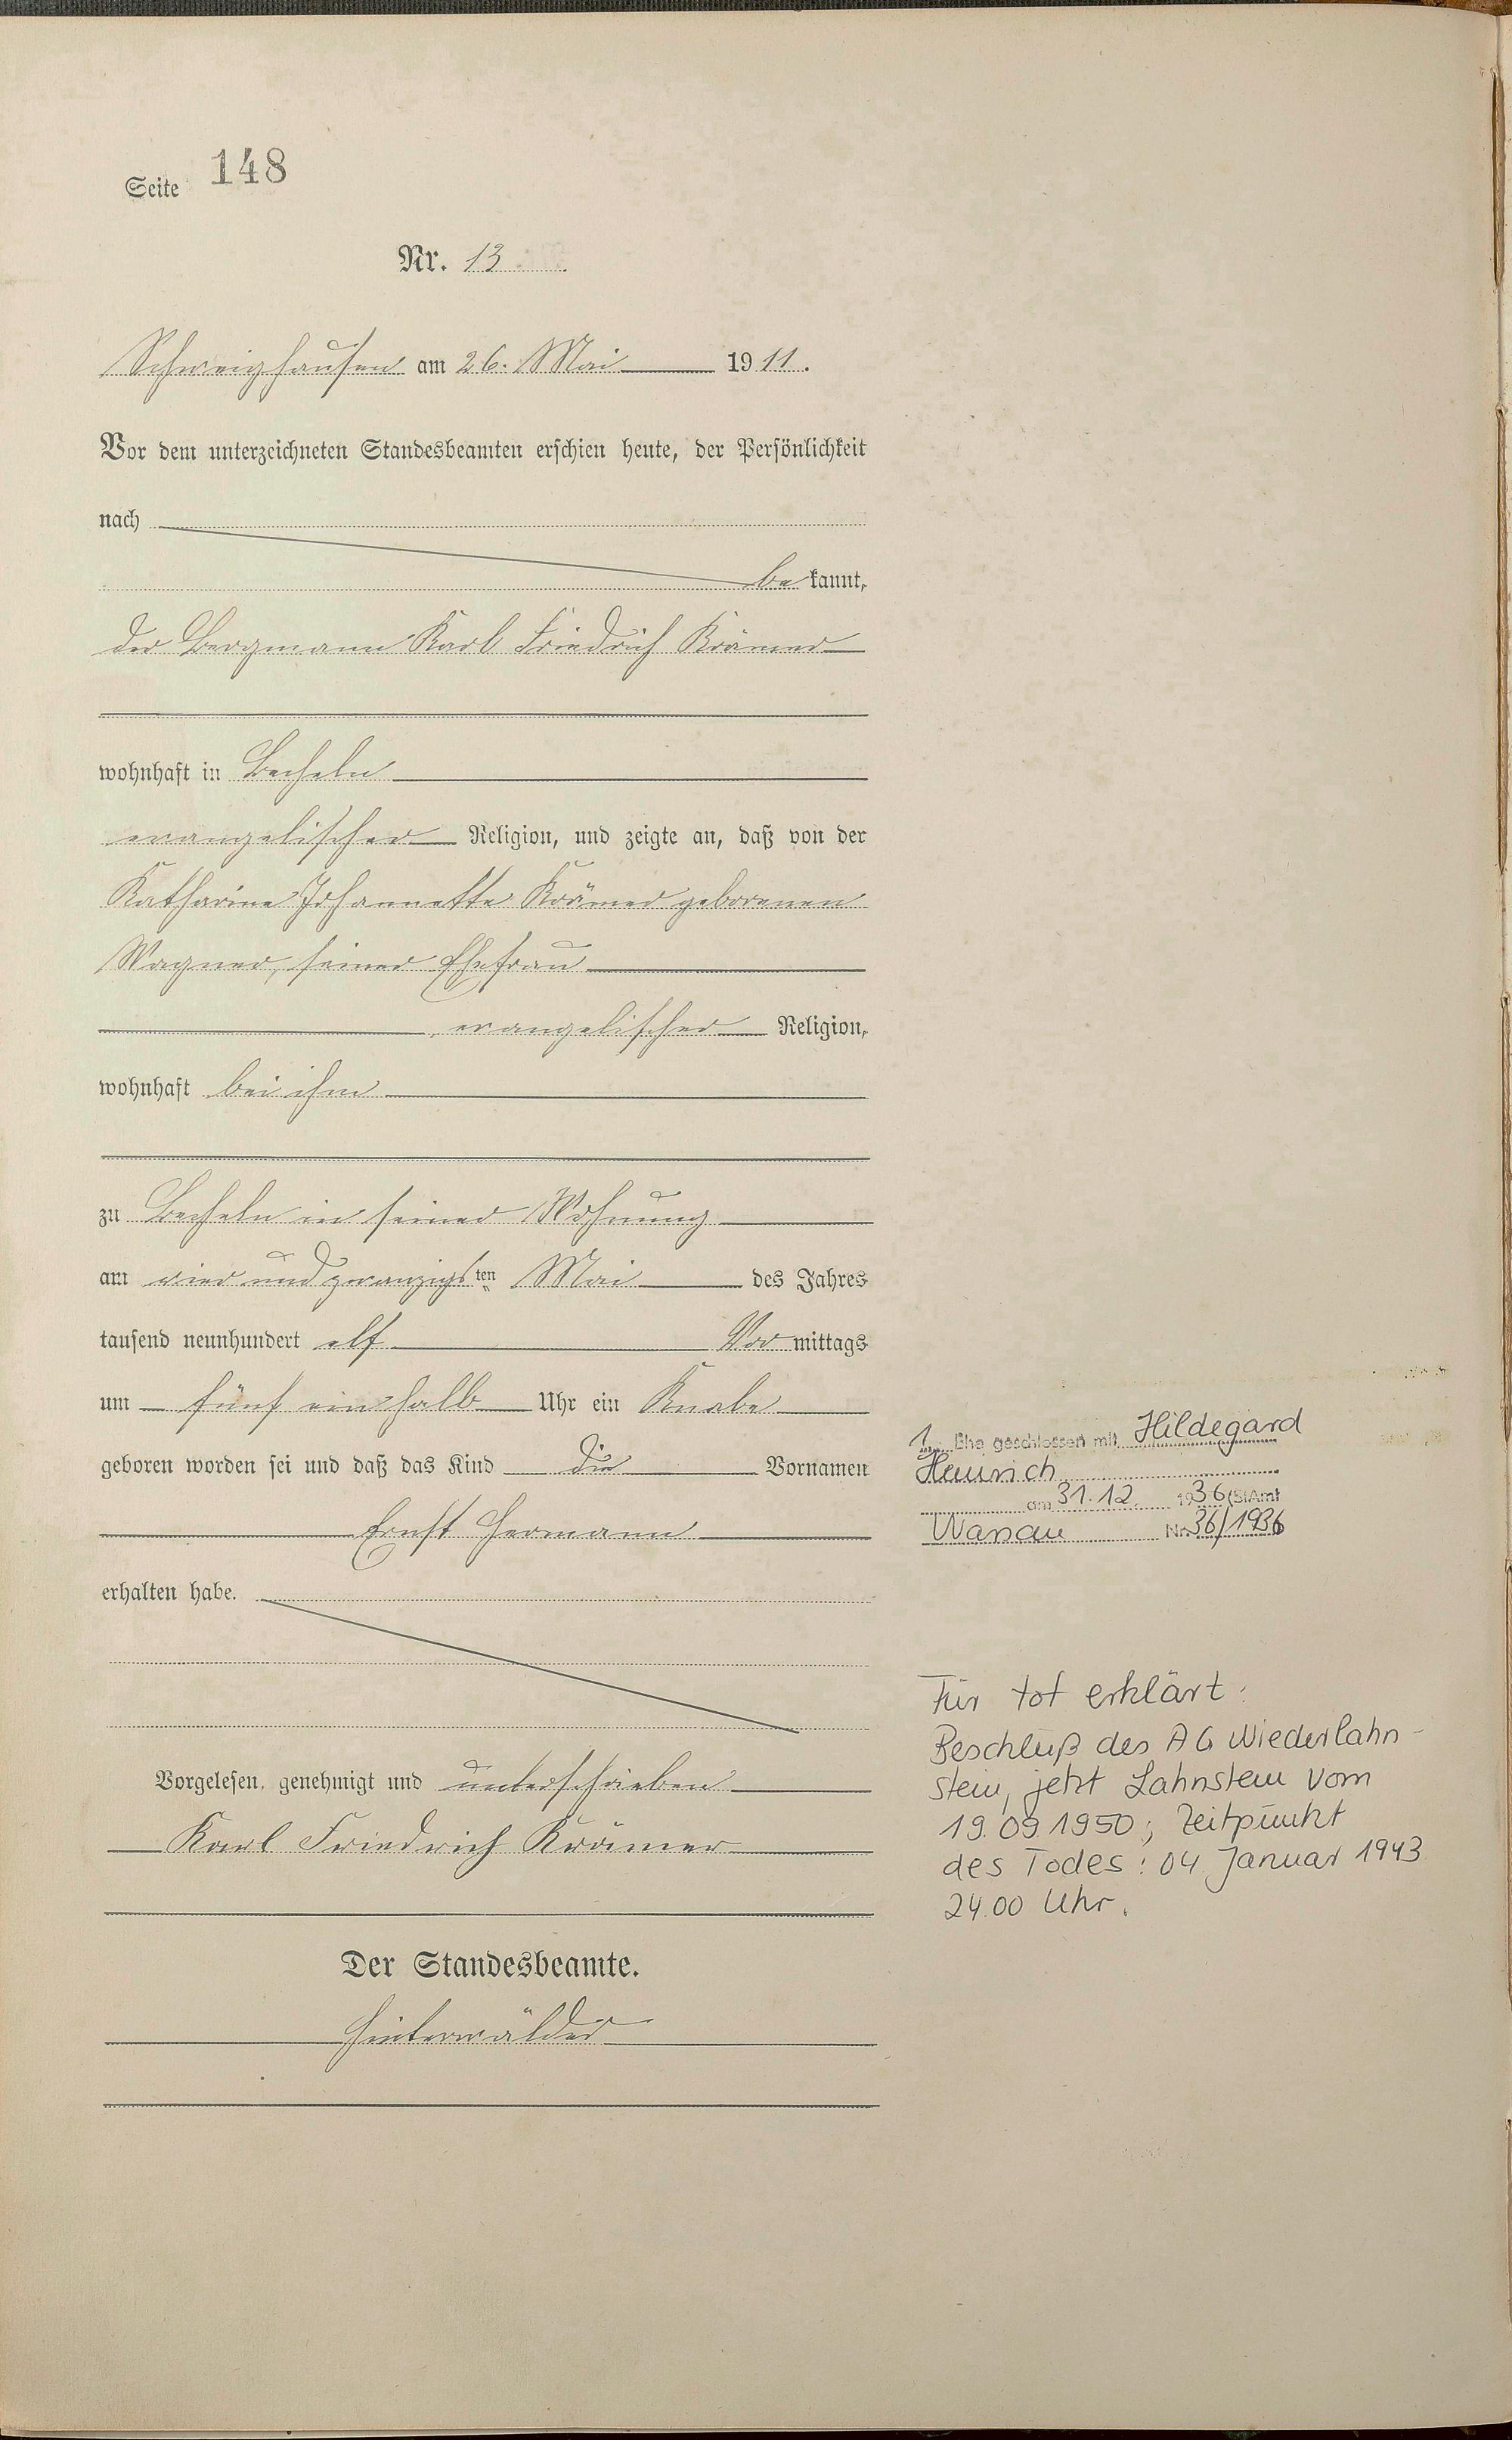 Seite 148
Nr. 13
Schweighausen am 26. Mai 1911.
Vor dem unterzeichneten Standesbeamten erschien heute, der Persönlichkeit
nach
bekannt,
der Bergmann Karl Friedrich Krämer
wohnhaft in Becheln
evangelischer Religion, und zeigte an, daß von der
Katharine Johannette Krämer geborenen
Wagner, seiner Ehefrau
evangelischer Religion,
wohnhaft bei ihm
zu Becheln in seiner Wohnung
am vier und zwanzigsten Mai des Jahres
tausend neunhundert elf Vormittags
um fünf einhalb Uhr ein Knabe
geboren worden sei und daß das Kind die Vornamen
Ernst Hermann
erhalten habe.
Vorgelesen, genehmigt und unterschrieben
Karl Friedrich Krämer
Der Standesbeamte.
Hinterwälder
1. Ehe geschlossen mit Hildegard
Heinrich
am 31.12. 1936 (StAmt
Nr. 36/1936
Für tot erklärt:
Beschluß des AG Niederlahn-
stein, jetzt Lahnstein vom
19.09.1950; Zeitpunkt
des Todes: 04 Januar 1943
24.00 Uhr.